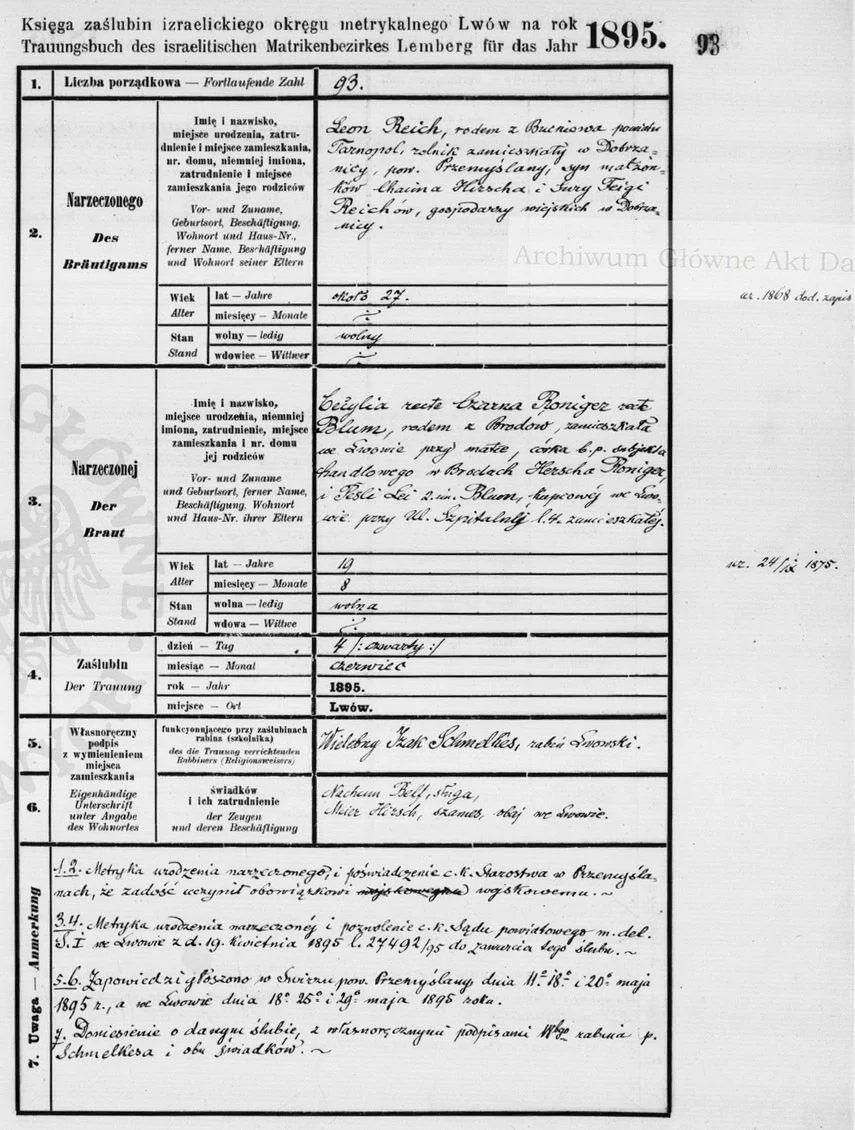 Księga zaślubin izraelickiego okręgu metrykalnego Lwów na rok
Trauungsbuch des israelitischen Matrikenbezirkes Lemberg für das Jahr
1895.
93
1. Liczba porządkowa — Fortlaufende Zahl 93.
2. Narzeczonego
Des
Bräutigams
Imię i nazwisko,
miejsce urodzenia, zatru-
dnienie i miejsce zamieszkania,
nr. domu, niemniej imiona,
zatrudnienie i miejsce
zamieszkania jego rodziców
Vor- und Zuname,
Geburtsort, Beschäftigung,
Wohnort und Haus-Nr.,
ferner Name, Beschäftigung
und Wohnort seiner Eltern
Leon Reich, rodem z Bucniowa powiatu
Tarnopol, rolnik zamieszkały w Dobrza-
nicy, pow. Przemyślany, syn małżon-
ków Chaima Hirscha i Sury Feigi
Reichów, gospodarzy wiejskich w Dobrza-
nicy.
Archiwum Główne Akt Da
Wiek
Alter
lat — Jahre około 27.
ur. 1868 dod. zapis
miesięcy — Monate ·/.
Stan
Stand
wolny — ledig wolny
wdowiec — Wittwer ·/.
3. Narzeczonej
Der
Braut
Imię i nazwisko,
miejsce urodzenia, niemniej
imiona, zatrudnienie, miejsce
zamieszkania i nr. domu
jej rodziców
Vor- und Zuname
und Geburtsort, ferner Name,
Beschäftigung, Wohnort
und Haus-Nr. ihrer Eltern
Cecylia recte Czarna Roniger recte
Blum, rodem z Brodów, zamieszkała
we Lwowie przy matce, córka b. p. subjekta
handlowego w Brodach Herscha Roniger,
i Pesli Lei 2. im. Blum, kupcowéj we Lwo-
wie przy Ul. Szpitalnéj l. 4. zamieszkałéj.
Wiek
Alter
lat — Jahre 19
ur. 24/IX 1875.
miesięcy — Monate 8
Stan
Stand
wolna — ledig wolna
wdowa — Wittwe ·/.
4. Zaślubin
Der Trauung
dzień — Tag 4 /: czwarty :/
miesiąc — Monat czerwiec
rok — Jahr 1895.
miejsce — Ort Lwów.
5.
6.
Własnoręczny
podpis
z wymienieniem
miejsca
zamieszkania
Eigenhändige
Unterschrift
unter Angabe
des Wohnortes
funkcyonującego przy zaślubinach
rabina (szkolnika)
des die Trauung verrichtenden
Rabbiners (Religionsweisers)
Wielebny Izak Schmelkes, rabin Lwowski.
świadków
i ich zatrudnienie
der Zeugen
und deren Beschäftigung
Nachum Belf, sługa,
Meier Hirsch, szames, obaj we Lwowie.
7. Uwaga — Anmerkung
1.2. Metryka urodzenia narzeczonego, i poświadczenie c. k. Starostwa w Przemyśla-
nach, że zadość uczynił obowiązkowi wojskowemu. ~
3.4. Metryka urodzenia narzeczonéj i pozwolenie c. k. Sądu powiatowego m. del.
S. I we Lwowie z d. 19. kwietnia 1895 l. 27492/95 do zawarcia tego ślubu. ~
5.6. Zapowiedzi głoszono w Swirzu pow. Przemyślany dnia 11º 18º i 20º maja
1895 r., a we Lwowie dnia 18º 25º i 29º maja 1895 roku.
7. Doniesienie o danym ślubie, z własnoręcznymi podpisami Wbgo rabina p.
Schmelkesa i obu świadków. ~
GŁÓWNE